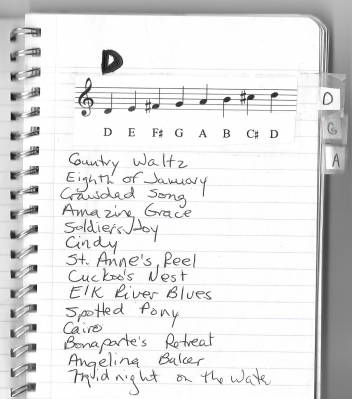 D
D E F# G A B C# D
D
G
A
Country Waltz
Eighth of January
Crawdad Song
Amazing Grace
Soldiers Joy
Cindy
St. Anne's Reel
Cuckoo's Nest
Elk River Blues
Spotted Pony
Cairo
Bonaparte's Retreat
Angelina Baker
Midnight on the Wate